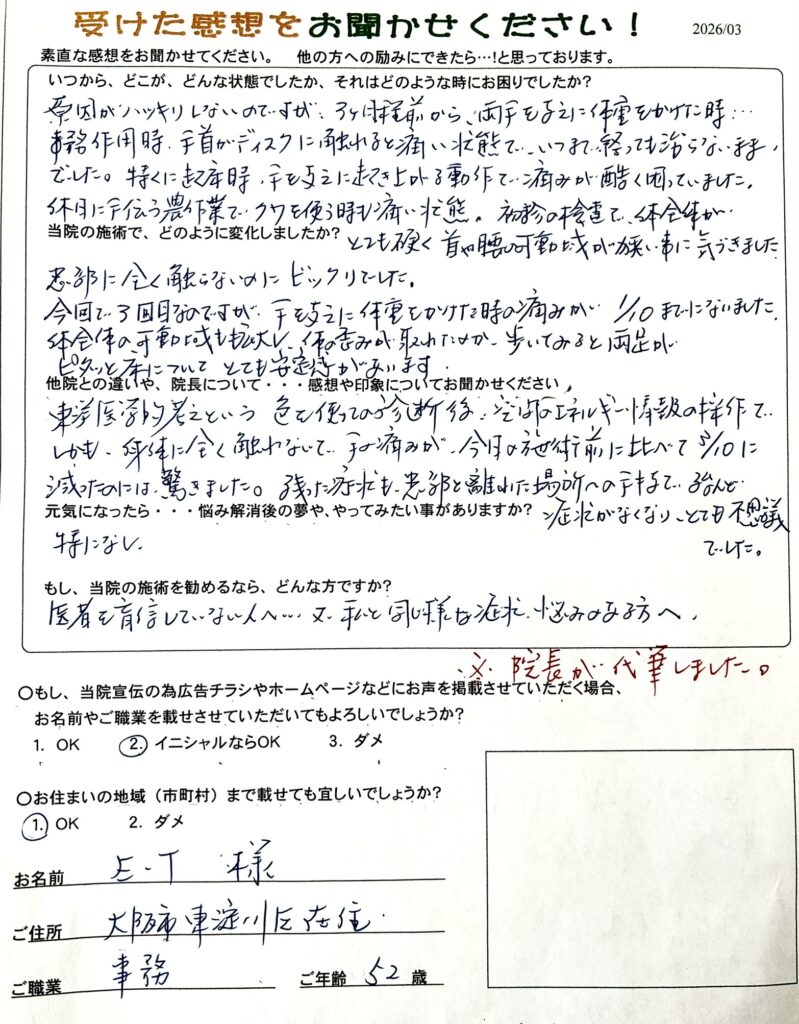 受けた感想をお聞かせください！
2026/03
素直な感想をお聞かせてください。　他の方への励みにできたら…!と思っております。
いつから、どこが、どんな状態でしたか、それはどのような時にお困りでしたか?
原因がハッキリしないのですが、3ヶ月程前から、両手を支えに体重をかけた時…
事務作用時、手首がディスクに触れると痛い状態で、いつまで経っても治らないまま
でした。特に起床時、手を支えに起き上がる動作で痛みが酷く困っていました。
休日に手伝う農作業でクワを使う時も痛い状態。初診の検査で、体全体が
とても硬く首や腰の可動域が狭い事に気づきました
当院の施術で、どのように変化しましたか?
患部に全く触らないのにビックリでした。
今回で3回目なのですが、手を支えに体重をかけた時の痛みが 1/10までになりました。
体全体の可動域も拡大し、体の歪みが取れたためか、歩いてみると両足が
ピタッと床についてとても安定感があります。
他院との違いや、院長について・・・感想や印象についてお聞かせください。
東洋医学的考えという 色を使っての診断後、空間のエネルギー情報の操作で
しかも、身体に全く触れないで、手の痛みが、今日の施術前に比べて5/10に
減ったのには、驚きました。残った症状も、患部と離れた場所への手当で、殆んど
症状がなくなり、とても不思議
でした。
元気になったら・・・悩み解消後の夢や、やってみたい事がありますか?
特になし
もし、当院の施術を勧めるなら、どんな方ですか?
医者を盲信していない人へ… 又、私と同じ様な症状、悩みのある方へ。
※ 院長が代筆しました。
〇もし、当院宣伝の為広告チラシやホームページなどにお声を掲載させていただく場合、
お名前やご職業を載せさせていただいてもよろしいでしょうか?
1. OK　2. イニシャルならOK　3. ダメ
〇お住まいの地域（市町村）まで載せても宜しいでしょうか?
1. OK　2. ダメ
お名前　E.T 様
ご住所　大阪市東淀川区在住
ご職業　事務　ご年齢 52 歳